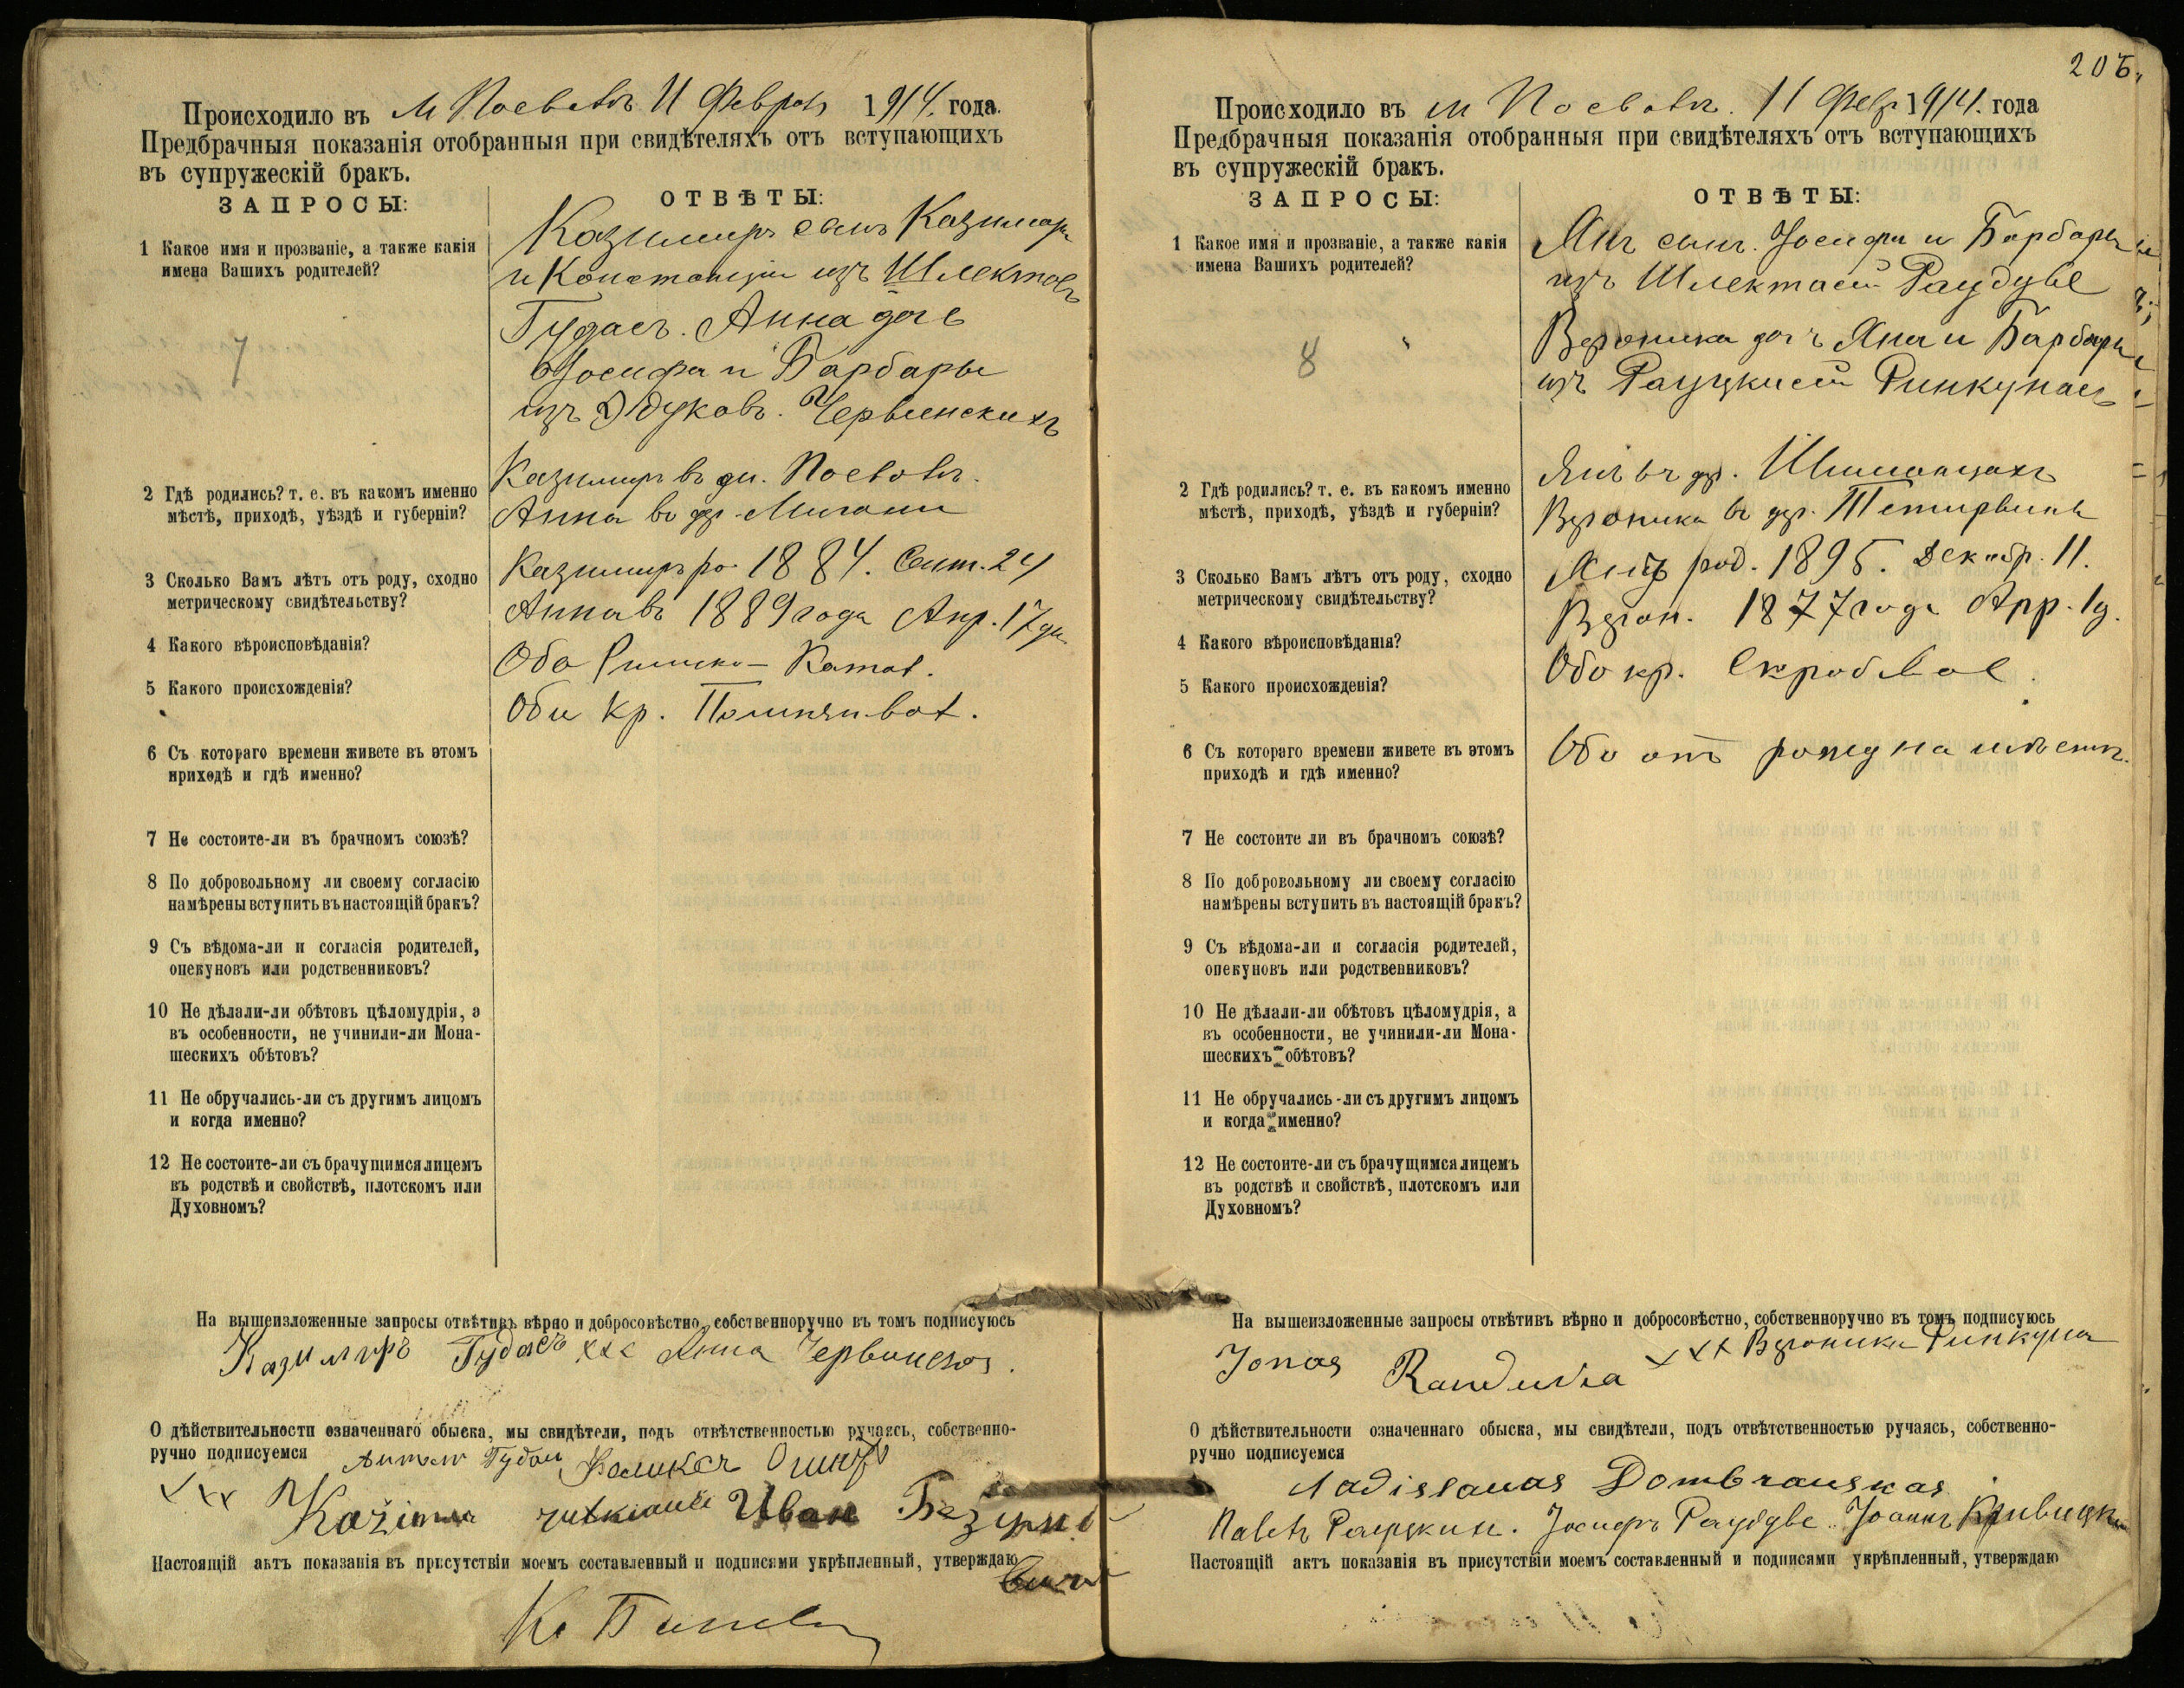 Происходило въ м Поевовъ 11 Февраля 1914. года.
Предбрачныя показанія отобранныя при свидѣтеляхъ отъ вступающихъ
въ супружескій бракъ.
ЗАПРОСЫ:
ОТВѢТЫ:
1 Какое имя и прозваніе, а также какія
имена Вашихъ родителей?
7
Казимиръ сынъ Казимира
и Констанціи изъ
Гудасъ. Анна дочь
Іосифа и Барбары
изъ Червинскихъ
2 Гдѣ родились? т. е. въ какомъ именно
мѣстѣ, приходѣ, уѣздѣ и губерніи?
Казимиръ въ Поевовъ.
Анна въ дер.
3 Сколько Вамъ лѣтъ отъ роду, сходно
метрическому свидѣтельству?
Казимиръ ро 1884. Сент. 24
Анна въ 1889 года Апр. 17 дн
4 Какого вѣроисповѣданія?
Оба Римско-Катол.
5 Какого происхожденія?
Оби кр.
6 Съ котораго времени живете въ этомъ
приходѣ и гдѣ именно?
7 Не состоите-ли въ брачномъ союзѣ?
8 По добровольному ли своему согласію
намѣрены вступить въ настоящій бракъ?
9 Съ вѣдома-ли и согласія родителей,
опекуновъ или родственниковъ?
10 Не дѣлали-ли обѣтовъ цѣломудрія, а
въ особенности, не учинили-ли Мона-
шескихъ обѣтовъ?
11 Не обручались-ли съ другимъ лицомъ
и когда именно?
12 Не состоите-ли съ брачущимся лицемъ
въ родствѣ и свойствѣ, плотскомъ или
Духовномъ?
На вышеизложенные запросы отвѣтивъ вѣрно и добросовѣстно, собственноручно въ томъ подписуюсь
Казимиръ Гудасъ xxx Анна
О дѣйствительности означеннаго обыска, мы свидѣтели, подъ отвѣтственностью ручаясь, собственно-
ручно подписуемся
xxx Kazimer Иван
Настоящій актъ показанія въ присутствіи моемъ составленный и подписями укрѣпленный, утверждаю
206.
Происходило въ м Поевовъ. 11 Февр 1914. года
Предбрачныя показанія отобранныя при свидѣтеляхъ отъ вступающихъ
въ супружескій бракъ.
ЗАПРОСЫ:
ОТВѢТЫ:
1 Какое имя и прозваніе, а также какія
имена Вашихъ родителей?
8
Янъ сынъ Іосифа и Барбары
изъ Раудуве
Вероника дочь Яна и Барбары
изъ Ринкунасъ
2 Гдѣ родились? т. е. въ какомъ именно
мѣстѣ, приходѣ, уѣздѣ и губерніи?
Янъ въ др.
Вероника въ дер.
3 Сколько Вамъ лѣтъ отъ роду, сходно
метрическому свидѣтельству?
Янъ род. 1895. Декабр. 11.
Верон. 1877 года Апр. 1 д.
4 Какого вѣроисповѣданія?
5 Какого происхожденія?
Оба кр.
6 Съ котораго времени живете въ этомъ
приходѣ и гдѣ именно?
Оба отъ на мѣстѣ.
7 Не состоите ли въ брачномъ союзѣ?
8 По добровольному ли своему согласію
намѣрены вступить въ настоящій бракъ?
9 Съ вѣдома-ли и согласія родителей,
опекуновъ или родственниковъ?
10 Не дѣлали-ли обѣтовъ цѣломудрія, а
въ особенности, не учинили-ли Мона-
шескихъ обѣтовъ?
11 Не обручались-ли съ другимъ лицомъ
и когда именно?
12 Не состоите-ли съ брачущимся лицемъ
въ родствѣ и свойствѣ, плотскомъ или
Духовномъ?
На вышеизложенные запросы отвѣтивъ вѣрно и добросовѣстно, собственноручно въ томъ подписуюсь
Jonas xxx Вероника Ринкуна
О дѣйствительности означеннаго обыска, мы свидѣтели, подъ отвѣтственностью ручаясь, собственно-
ручно подписуемся
Dombrauskas
Іосифъ Раудуве
Настоящій актъ показанія въ присутствіи моемъ составленный и подписями укрѣпленный, утверждаю